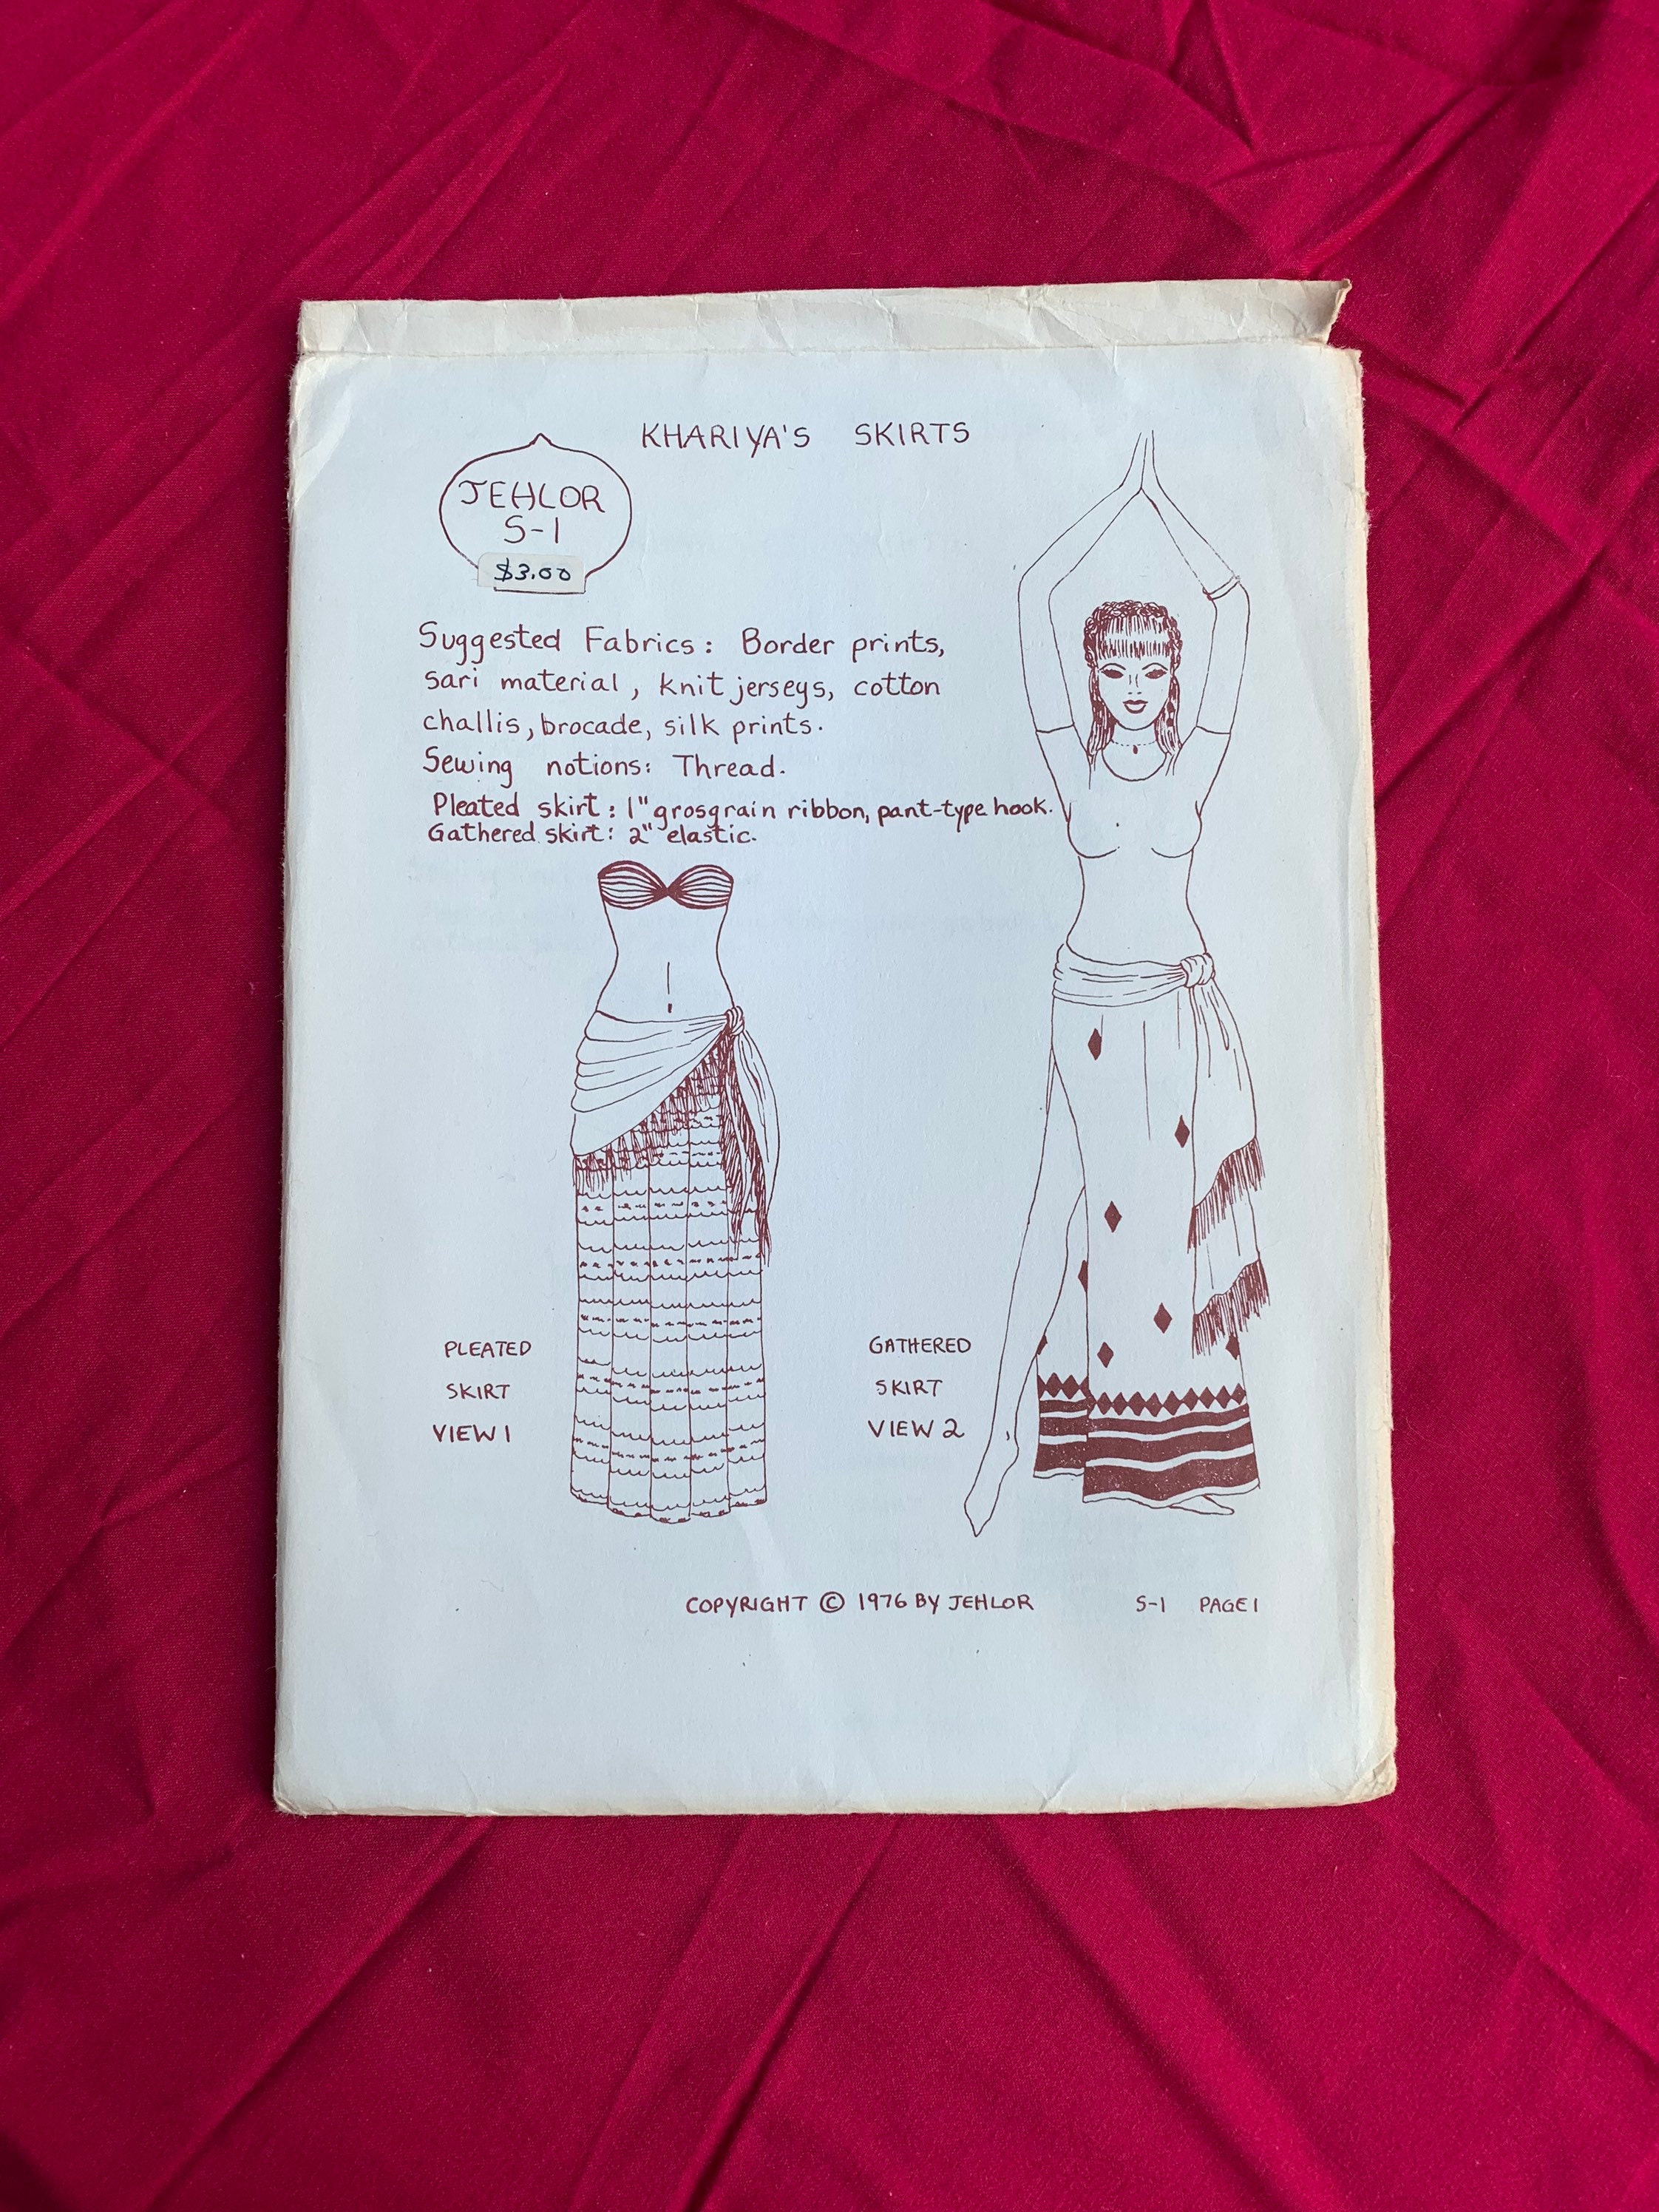 KHARIYA'S SKIRTS
JEHLOR
S-1
$3.00
Suggested Fabrics: Border prints,
sari material, knit jerseys, cotton
challis, brocade, silk prints.
Sewing notions: Thread.
Pleated skirt: 1" grosgrain ribbon, pant-type hook.
Gathered skirt: 2" elastic.
PLEATED
SKIRT
VIEW 1
GATHERED
SKIRT
VIEW 2
COPYRIGHT © 1976 BY JEHLOR S-1 PAGE 1